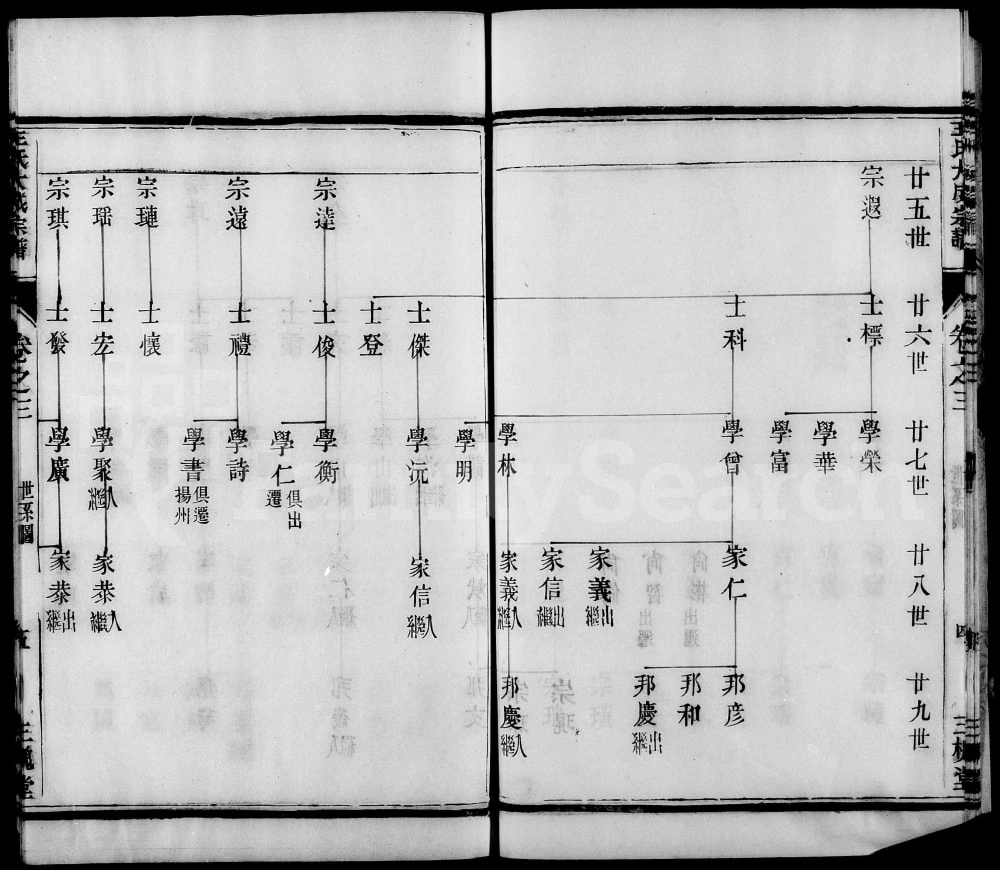 王氏大成宗譜
卷之三
世系圖
四
三槐堂
廿五世
廿六世
廿七世
廿八世
廿九世
宗遐
士標
學榮
學華
學富
士科
學曾
家仁
邦彥
邦和
邦慶出繼
家義出繼
家信出繼
學林
家義入繼
邦慶入繼
學明
士傑
學沅
家信入繼
士登
宗達
士俊
學衡
學仁俱出遷
宗遠
士禮
學詩
學書俱遷揚州
宗璉
士懷
宗瑶
士宏
學聚入繼
家恭入繼
宗琪
士發
學廣
家恭出繼
王氏大成宗譜
卷之三
世系圖
五
三槐堂
FamilySearch